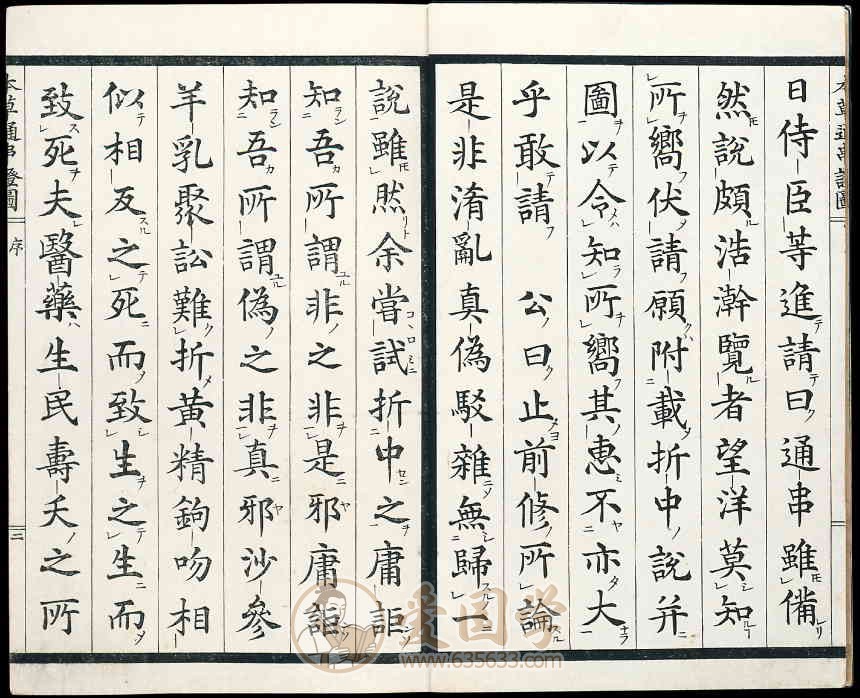 日侍臣等進請曰通串雖備
然說頗浩瀚覽者望洋莫知
所嚮伏請願附載折中說并
圖以令知所嚮其惠不亦大
乎敢請 公曰止前修所論
是非淆亂真偽駁雜無歸一
說雖然余嘗試折中之庸詎
知吾所謂非之非是邪庸詎
知吾所謂偽之非真邪沙參
羊乳聚訟難折黃精鉤吻相
似相反之死而致生之生而
致死夫醫藥生民壽夭之所
本草通串證圖
序
三
本草通串證圖
爱国学
www.635633.com